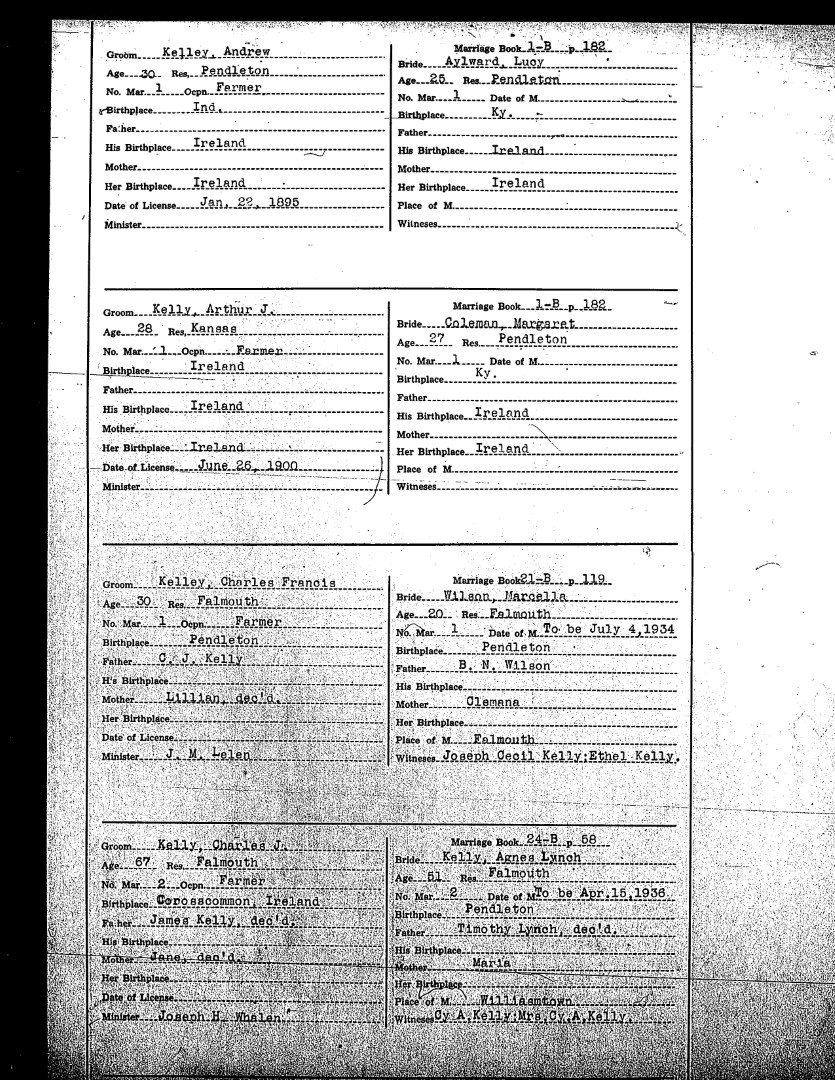 Groom Kelley, Andrew
Age 30 Res. Pendleton
No. Mar. 1 Ocpn. Farmer
Birthplace Ind.
Father
His Birthplace Ireland
Mother
Her Birthplace Ireland
Date of License Jan. 22, 1895
Minister
Marriage Book 1-B p. 182
Bride Aylward, Lucy
Age 25 Res. Pendleton
No. Mar. 1 Date of M.
Birthplace Ky.
Father
His Birthplace Ireland
Mother
Her Birthplace Ireland
Place of M.
Witneses
Groom Kelly, Arthur J.
Age 28 Res. Kansas
No. Mar. 1 Ocpn. Farmer
Birthplace Ireland
Father
His Birthplace Ireland
Mother
Her Birthplace Ireland
Date of License June 26, 1900
Minister
Marriage Book 1-B p. 182
Bride Coleman, Margaret
Age 27 Res. Pendleton
No. Mar. 1 Date of M.
Birthplace Ky.
Father
His Birthplace Ireland
Mother
Her Birthplace Ireland
Place of M.
Witneses
Groom Kelley, Charles Francis
Age 30 Res. Falmouth
No. Mar. 1 Ocpn. Farmer
Birthplace Pendleton
Father C. J. Kelly
H's Birthplace
Mother Lillian, dec'd.
Her Birthplace
Date of License
Minister J. M. Lelen
Marriage Book 21-B p. 119
Bride Wilson, Marcella
Age 20 Res. Falmouth
No. Mar. 1 Date of M. To be July 4,1934
Birthplace Pendleton
Father B. N. Wilson
His Birthplace
Mother Clemana
Her Birthplace
Place of M. Falmouth
Witneses Joseph Cecil Kelly;Ethel Kelly.
Groom Kelly, Charles J.
Age 67 Res. Falmouth
No. Mar. 2 Ocpn. Farmer
Birthplace Corosscommon, Ireland
Father James Kelly, dec'd.
His Birthplace
Mother Jane, dec'd.
Her Birthplace
Date of License
Minister Joseph H. Whalen
Marriage Book 24-B p. 58
Bride Kelly, Agnes Lynch
Age 51 Res. Falmouth
No. Mar. 2 Date of M. To be Apr.15,1936
Birthplace Pendleton
Father Timothy Lynch, dec'd.
His Birthplace
Mother Maria
Her Birthplace
Place of M. Williamstown
Witneses Cy A.Kelly;Mrs.Cy.A.Kelly.